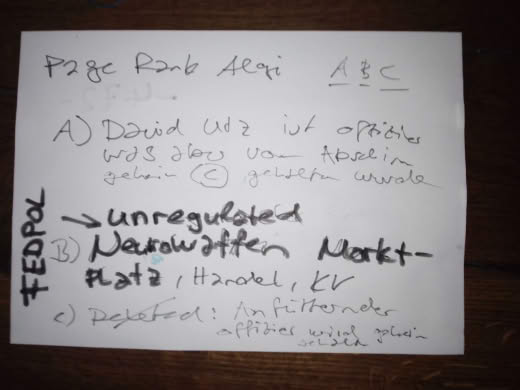 Page Rank Algi A B C
A) David Utz ist offizier
was aber vom
geheim (C) gehalten wurde
FEDPOL
→ unregulated
B) Neurowaffen Markt-
Platz, Handel, KV
c) : Anfütternder
offizier wird geheim